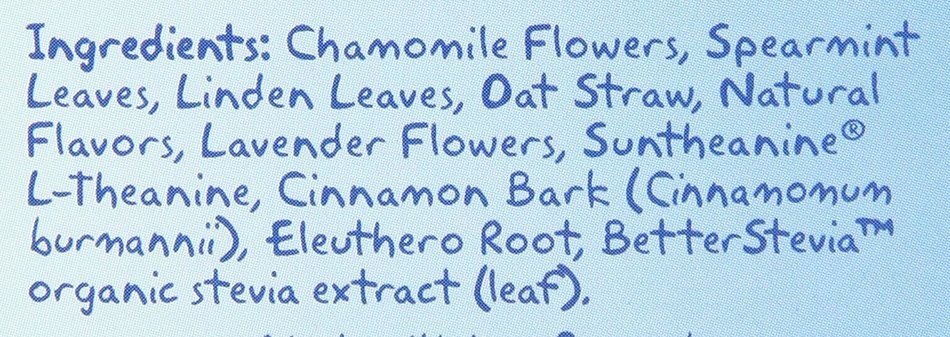 Ingredients: Chamomile Flowers, Spearmint
Leaves, Linden Leaves, Oat Straw, Natural
Flavors, Lavender Flowers, Suntheanine®
L-Theanine, Cinnamon Bark (Cinnamonum
burmannii), Eleuthero Root, BetterStevia™
organic stevia extract (leaf).